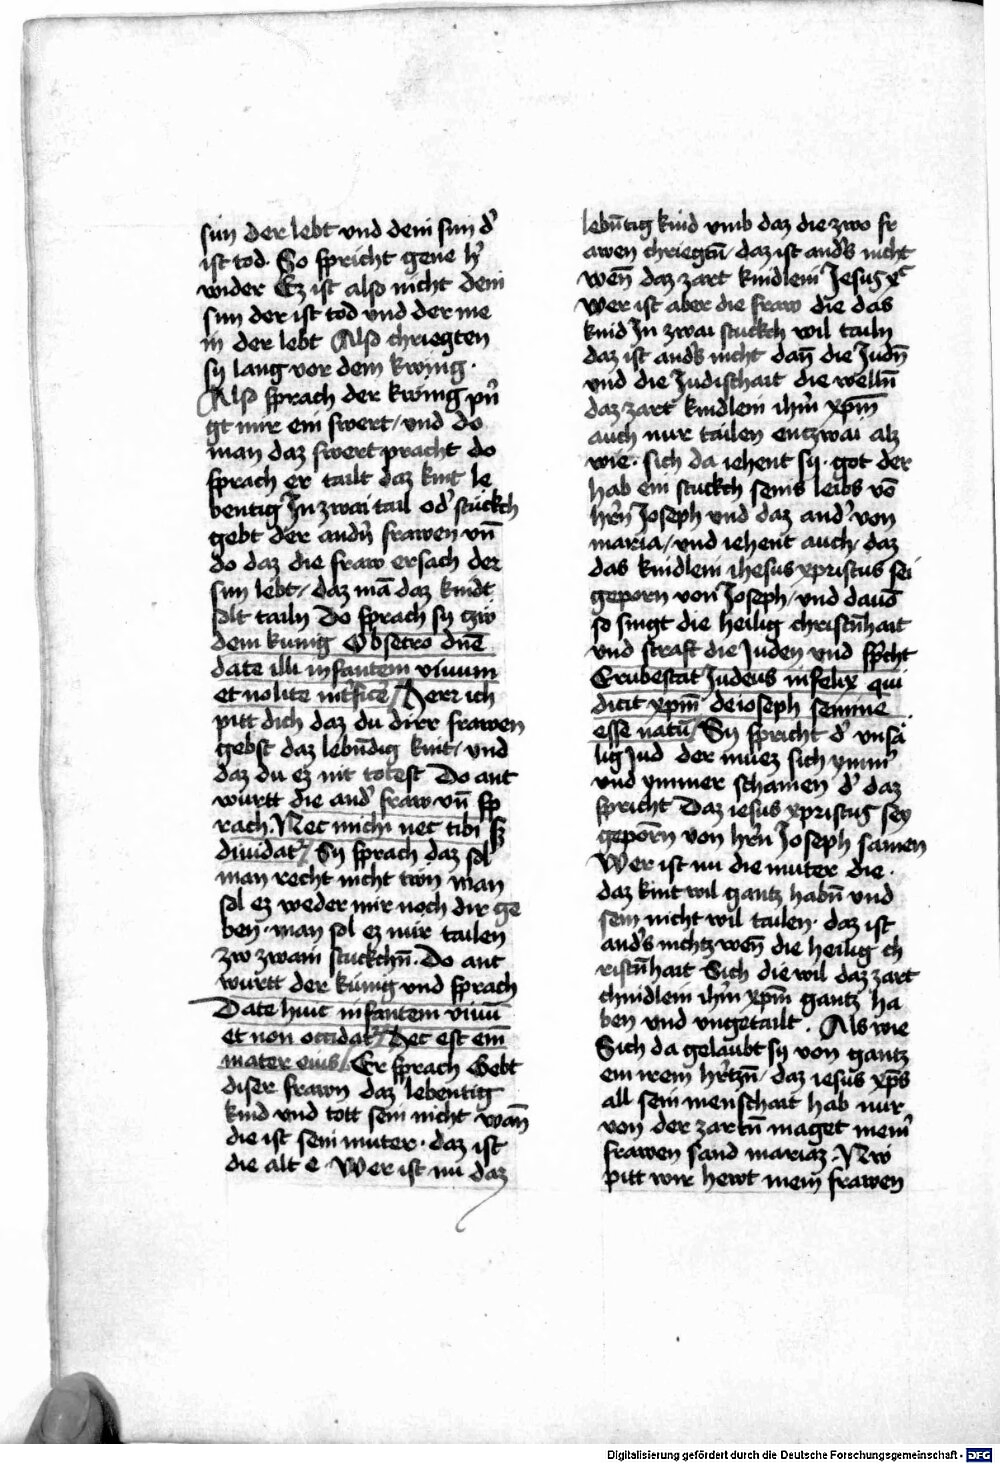 sun der lebt und dein sun d'
ist tod. So spricht gene h'
wider Ez ist also nicht dein
sun der ist tod und der me
in der lebt Also chriegten
sy lang vor dem kwnig.
Also sprach der kwnig pn̄
gt mir ein swert / und do
man daz swert pracht do
sprach er tailt daz kint le
bentig In zwai tail od' stückch
gebt der andn̄ frawen vn̄
do daz die fraw ersach der
sun lebt / daz mā daz kindt
solt tailn Do sprach sy tzw
dem kunig Obsecro dn̄e
date illi infantem vivum
et nolite int'fic'e / Herr ich
pitt dich daz du dirr frawen
gebst daz lebn̄dig kint / und
daz du ez nit totest Do ant
wurtt die and' fraw vn̄ sp
rach. Nec michi nec tibi sz
dividat' / Sy sprach daz sol
man recht nicht twn man
sol ez weder mir noch dir ge
ben. man sol ez nur tailen
zw zwain stuckchn̄. Do ant
wurtt der kunig und sprach
Date huic infantem vivū
et non occidat' / Hec est em̄
mater eius / Er sprach Gebt
diser frawn daz lebentig
kind und tott sein nicht wan̄
die ist sein muter. daz ist
die alt e. Wer ist nu daz
lebn̄tig kind vmb daz die zwo fr
awen chriegtn̄ / daz ist and's nicht
wen̄ daz zart kindlein Jesus xc
Wer ist aber die fraw die das
kind In zwai stuckch wil tailn
daz ist and's nicht dan̄ die Judn̄
und die Judischait die welln̄
daz zart kindlein ihm̄ xpm̄
auch nur tailen entzwai alz
wie. sich da iehent sy. got der
hab ein stuckch seins leibs vō
hrn̄ Joseph und daz and' von
maria / und iehent auch / daz
das kindlein ihesus xpristus sei
geporn von Joseph / und davō
so singt die heilig christn̄hait
und straft die Juden und sp'cht
Erubescat Judeus infelix qui
dicit xpm̄ de ioseph semine
esse natū / Sy spricht d' vnsä
lig Jud der muez sich ymm'
und ymmer schamen d' daz
spricht Daz iesus xpristus sey
geporn̄ von hrn̄ Joseph samen
Wer ist nu die muter die.
daz kint wil gantz habn̄ und
sein nicht wil tailen. daz ist
and's nichtz wen̄ die heilig ch
ristn̄hait Sich die wil daz zart
chindlein ihm̄ xpm̄ gantz ha
ben und vngetailt. Als wie
Sich da gelaubt sy von gantz
em irem hr̄tzn̄ / daz iesus xp̄s
all sein menschait hab nur
von der zartn̄ maget mein'
frawen sand mariaz. Nw
pitt wir hewt mein frawen
Digitalisierung gefördert durch die Deutsche Forschungsgemeinschaft - DFG